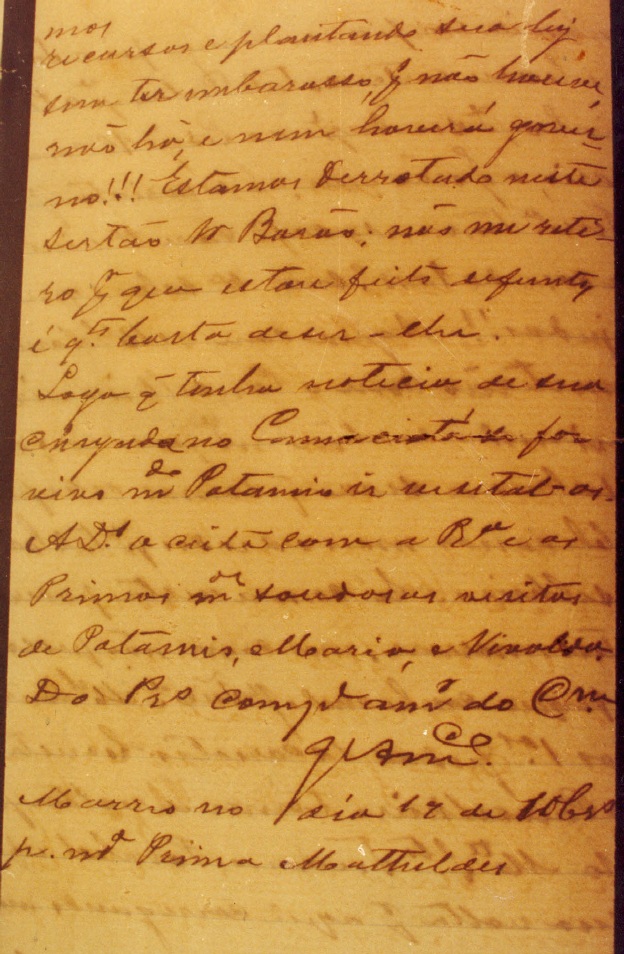 mos
recursos e plantando sua lei
sem ter imbarasso, q̃ não houve,
não há, e nem haverá gover-
no!!! Estamos Derrotado neste
sertão Sr Barão; não me reti-
ro q̃ que estou feito
é q.to basta diser-lhe.
Logo q̃ tenha noticia de sua
chegada no for
vivo m.do Potamio ir visital-os.
A D.s aceite com a B.a e os
Primos m.de saudosas visitas
de Potamio, Maria, e Vivaldo.
Do Pr.o Comp.e am.o do C.
q Am.ce.
Morreo no dia 17 de 10br.o
p. m.a Prima Mathildes